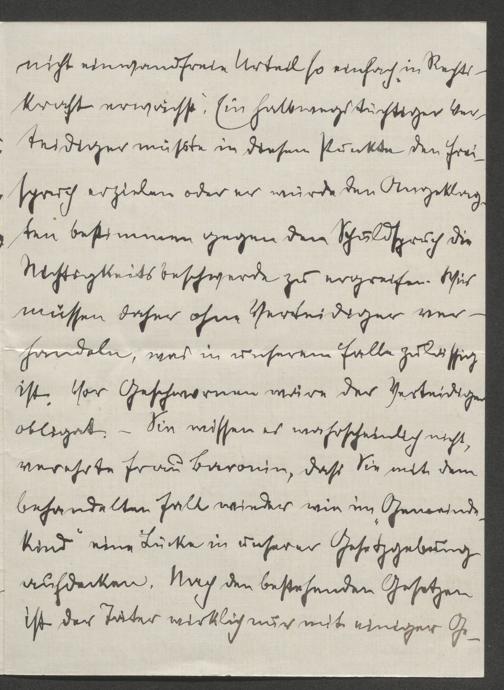 nicht einwandfreie Urteil so einfach „in Rechts-
kraft erwächst“. Ein halbwegs tüchtiger Ver-
teidiger müßte in diesem Punkte den Frei-
spruch erzielen oder er würde den Angeklag-
ten bestimmen gegen den Schuldspruch die
Nichtigkeitsbeschwerde zu ergreifen. Wir
müssen daher ohne Verteidiger ver-
handeln, was in unserem Falle zulässig
ist. Vor Geschwornen wäre der Verteidiger
obligat. – Sie wissen es wahrscheinlich nicht,
verehrte Frau Baronin, daß Sie mit dem
behandelten Fall wieder wie im „Gemeinde-
kind“ eine Lücke in unserer Gesetzgebung
aufdecken. Nach den bestehenden Gesetzen
ist der Täter wirklich nur mit einiger Ge-